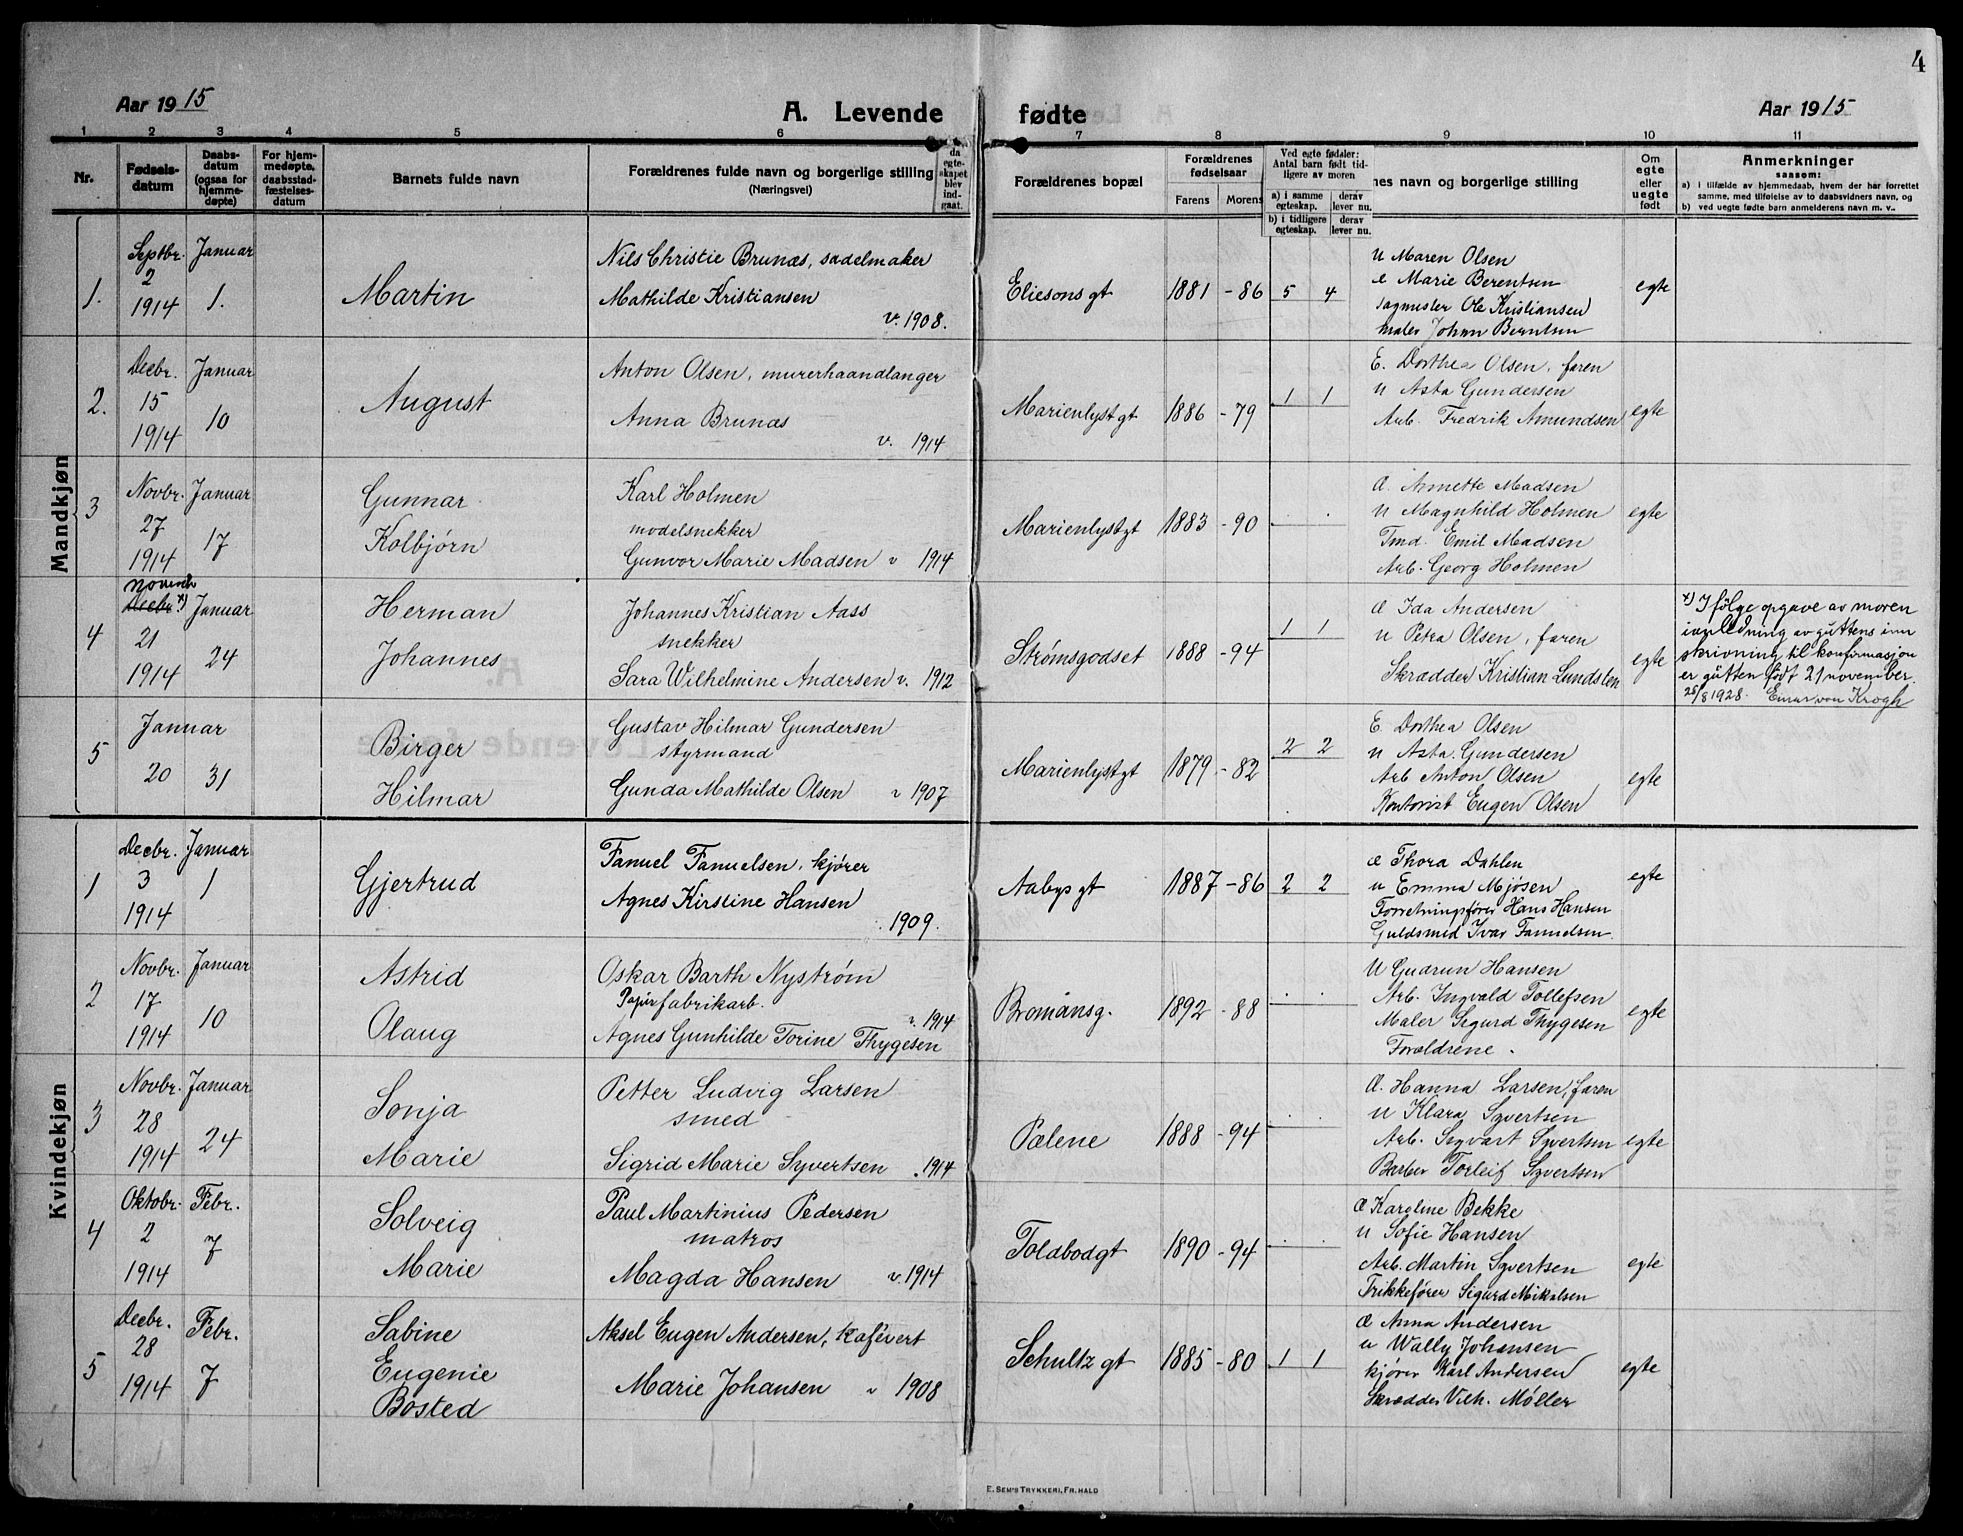 4
Aar 1915
A. Levende fødte
Aar 1915
1 2 3 4 5 6 7 8 9 10 11
Nr.
Fødsels-
datum
Daabs-
datum
(ogsaa for
hjemme-
døpte)
For hjem-
medøpte,
daabsstad-
fæstelses-
datum
Barnets fulde navn
Forældrenes fulde navn og borgerlige stilling
(Næringsvei)
da
egte-
skapet
blev
ind-
gaat.
Forældrenes bopæl
Forældrenes
fødselsaar
Farens Morens
Ved egte fødsler:
Antal barn født tid-
ligere av moren
a) i samme egteskap. derav lever nu.
b) i tidligere egteskap. derav lever nu.
nes navn og borgerlige stilling
Om
egte
eller
uegte
født
Anmerkninger
sansom:
a) i tilfælde av hjemmedaab, hvem der har forrettet
samme, med tilføielse av to daabsvidners navn, og
b) ved uegte fødte barn anmelderens navn m. v..
Mandkjøn
1.
Septbr.
2
1914
Januar
1.
Martin
Nils Christie Brunæs, sadelmaker
Mathilde Kristiansen
v. 1908.
Eliesons gt
1881 - 86
5 4
U Maren Olsen
e Marie Berentsen
Sagmester Ole Kristiansen
maler Johan Berntsen
egte
2.
Decbr.
15
1914
Januar
10
August
Anton Olsen, murerhaandlanger
Anna Brunæs
v. 1914
Marienlyst gt
1886 - 79
1 1
E. Dorthea Olsen, faren
U Asta Gundersen
Arb. Fredrik Amundsen
egte
3
Novbr.
27
1914
Januar
17
Gunnar
Kolbjørn
Karl Holmen
modelsnekker
Gunvor Marie Madsen v 1914
Marienlystgt
1883 - 90
Æ. Annette Madsen
U Magnhild Holmen
Tmd. Emil Madsen
Arb. Georg Holmen
egte
4
novemb
Decbr x)
21
1914
Januar
24
Herman
Johannes
Johannes Kristian Aass
snekker
Sara Wilhelmine Andersen v. 1912
Strømsgodset
1888 - 94
1 1
Æ Ida Andersen
U Petra Olsen, faren
Skrædder Kristian Lundsten
egte
x) Ifölge opgave av moren
i anledning av guttens inn
skrivning til konfirmasjon
er gutten født 21 november.
25/8 1928. Einar von Krogh
5
Januar
20
31
Birger
Hilmar
Gustav Hilmar Gundersen
styrmand
Gunda Mathilde Olsen v 1907
Marienlystgt
1879 - 82
2 2
E. Dorthea Olsen
U Asta Gundersen
Arb Anton Olsen
Kontorist Eugen Olsen
egte
Kvindekjøn
1
Decbr.
3
1914
Januar
1
Gjertrud
Fanuel Fanuelsen, kjører
Agnes Kirstine Hansen
1909.
Aabys gt
1887 - 86
2 2
Æ Thora Dahlen
U Emma Mjøsen
Forretningsfører Hans Hansen
Guldsmed Ivar Fanuelsen
egte
2
Novbr.
17
1914
Januar
10
Astrid
Olaug
Oskar Barth Nystrøm
Papirfabrikarb.
v. 1914
Agnes Gunhilde Torine Thygesen
Bromansg.
1892 - 88
U Gudrun Hansen
Arb. Ingvald Tollefsen
Maler Sigurd Thygesen
Forældrene.
egte
3
Novbr.
28
1914
Januar
24
Sonja
Marie
Petter Ludvig Larsen
smed
Sigrid Marie Syvertsen . 1914
Pælene
1888 - 94
Æ. Hanna Larsen, faren
U Klara Syvertsen
Arb. Sigvart Syvertsen
Barber Torleif Syvertsen
egte
4
Oktobr.
2
1914
Febr.
7
Solveig
Marie
Paul Martinius Pedersen
matros
Magda Hansen v. 1914
Toldbodgt
1890 - 94
Æ Karoline Bekke
U Sofie Hansen
Arb. Martin Syvertsen
Trikkefører Sigurd Mikalsen
egte
5
Decbr.
28
1914
Febr.
7
Sabine
Eugenie
Bosted
Aksel Eugen Andersen, Kafévert
Marie Johansen v 1908
Schultz gt
1885 - 80
1 1
Æ Anna Andersen
U Wally Johansen
kjører Karl Andersen
Skrædder Vilh. Møller
egte
E. SEM'S TRYKKERI, FR.HALD